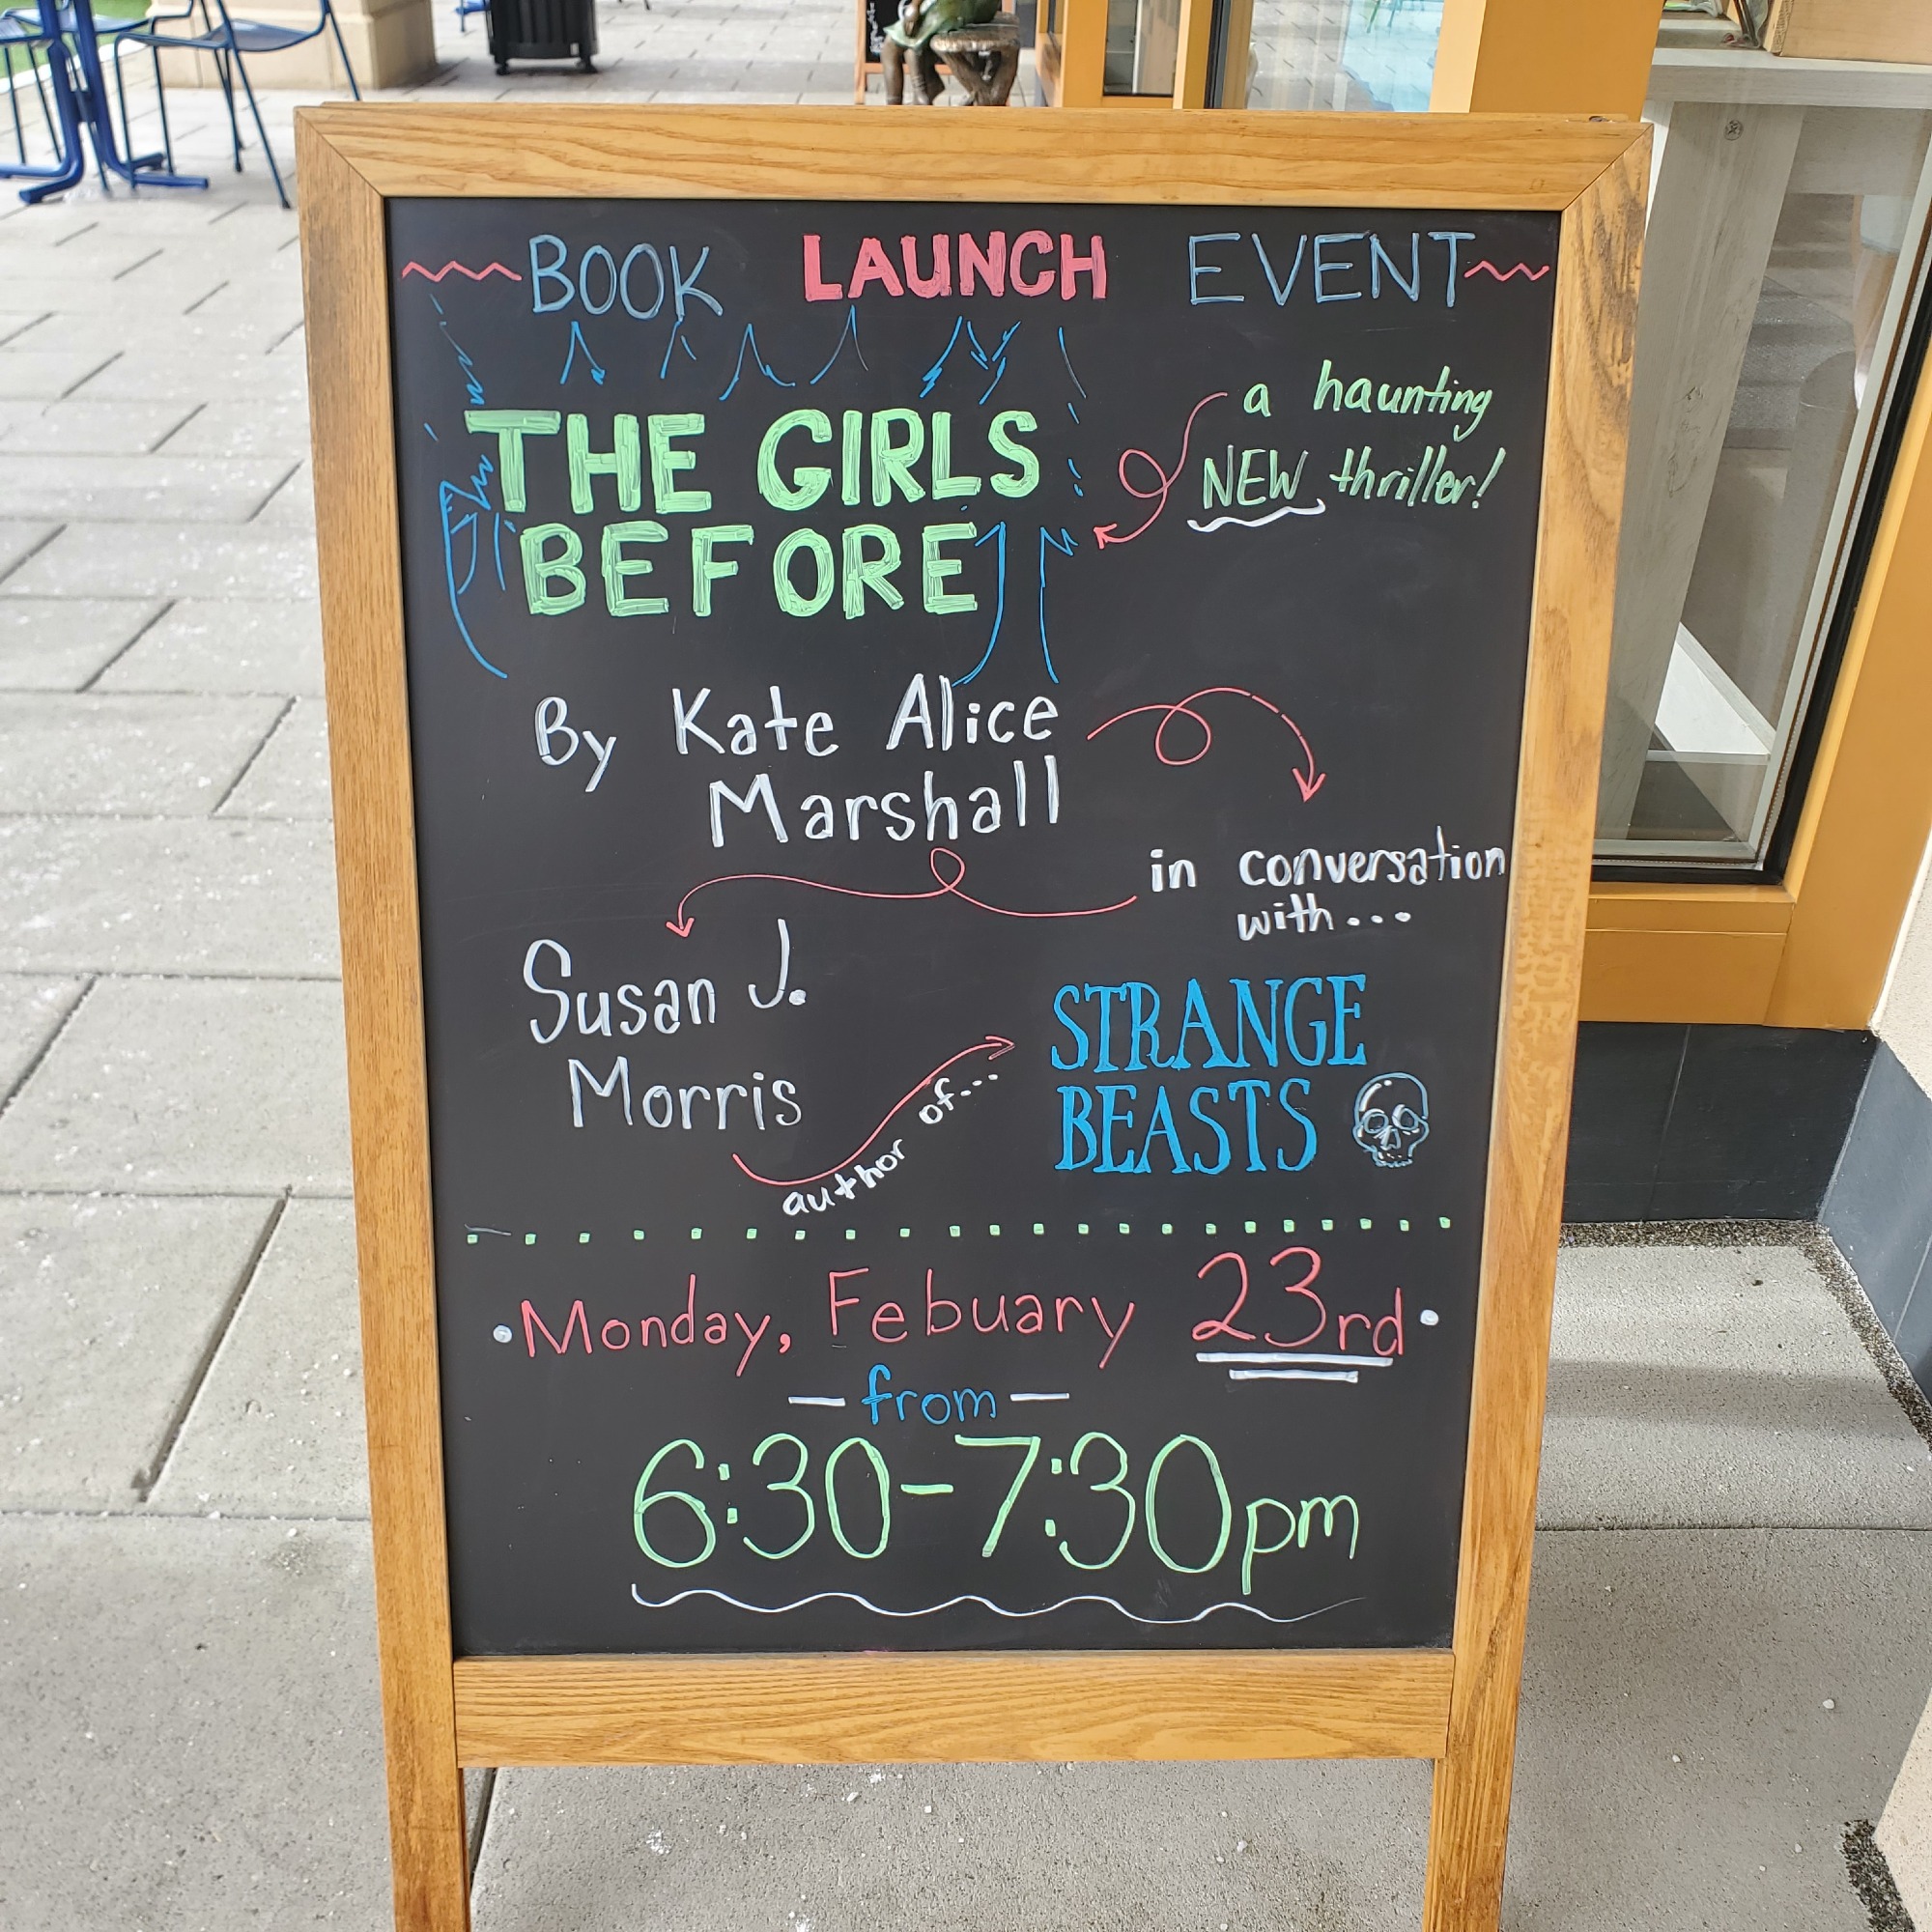 BOOK LAUNCH EVENT
a haunting
NEW thriller!
THE GIRLS
BEFORE
By Kate Alice
Marshall
in conversation
with...
Susan J.
Morris
author of...
STRANGE
BEASTS
Monday, Febuary 23rd
from
6:30-7:30pm